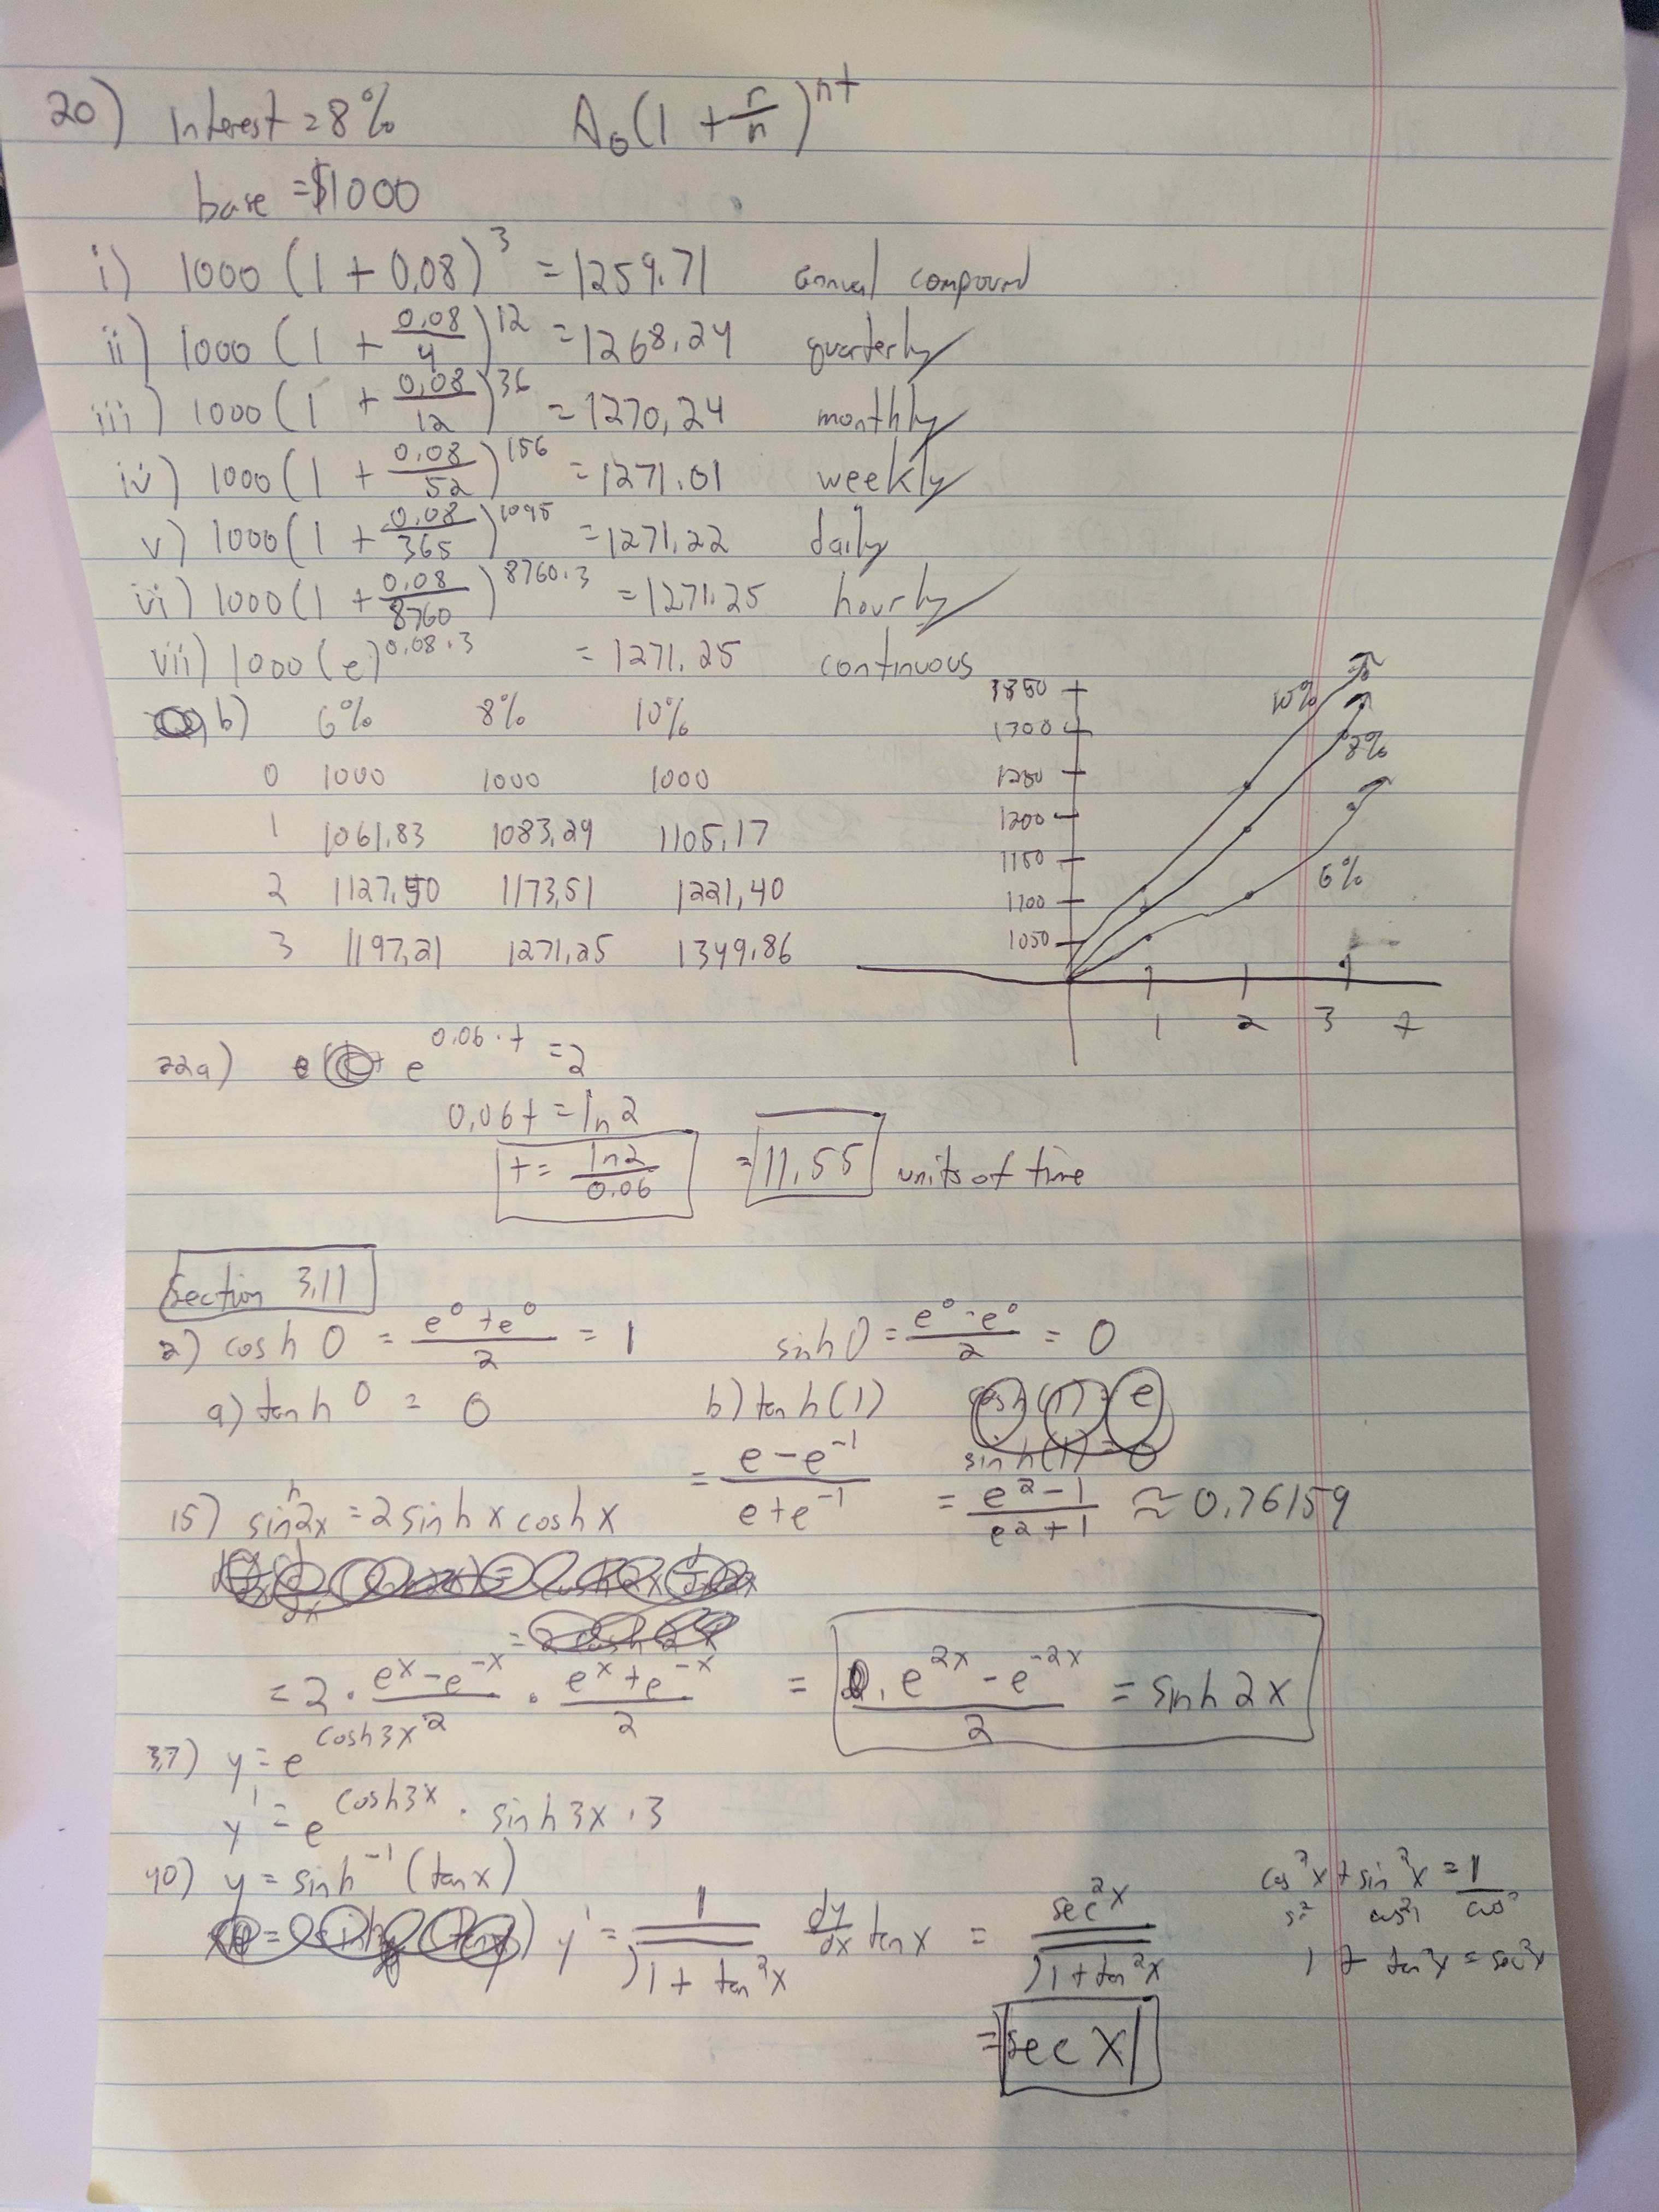 20) Interest = 8% A₀(1 + r/n)^nt
base = $1000
i) 1000 (1 + 0.08)^3 = 1259.71 annual compound
ii) 1000 (1 + 0.08/4)^12 = 1268.24 quarterly
iii) 1000 (1 + 0.08/12)^36 = 1270.24 monthly
iv) 1000 (1 + 0.08/52)^156 = 1271.01 weekly
v) 1000 (1 + 0.08/365)^1095 = 1271.22 daily
vi) 1000 (1 + 0.08/8760)^8760·3 = 1271.25 hourly
vii) 1000 (e)^0.08·3 = 1271.25 continuous
b) 6% 8% 10%
0 1000 1000 1000
1 1061.83 1083.29 1105.17
2 1127.50 1173.51 1221.40
3 1197.21 1271.25 1349.86
1350
1300
1250
1200
1150
1100
1050
10%
8%
6%
1 2 3 t
22a) e^0.06·t = 2
0.06t = ln 2
t = ln2/0.06 = 11.55 units of time
Section 3.11
2) cosh 0 = (e^0 + e^0)/2 = 1 sinh 0 = (e^0 - e^0)/2 = 0
a) tanh 0 = 0 b) tanh(1)
sinh(1) = 0
= (e - e^-1)/(e + e^-1) = (e^2 - 1)/(e^2 + 1) ≈ 0.76159
15) sinh2x = 2 sinh x cosh x
= 2 · (e^x - e^-x)/2 · (e^x + e^-x)/2 = (e^2x - e^-2x)/2 = sinh 2x
37) y = e^cosh3x
y' = e^cosh3x · sinh 3x · 3
40) y = sinh^-1 (tanx)
y' = 1/√(1 + tan^2x) dy/dx tanx = sec^2x/√(1 + tan^2x)
= |sec x|
cos^2x + sin^2x = 1
1 + tan^2x = sec^2x